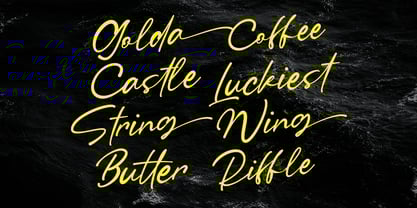 Golda Coffee
Castle Luckiest
String Wing
Butter Riffle